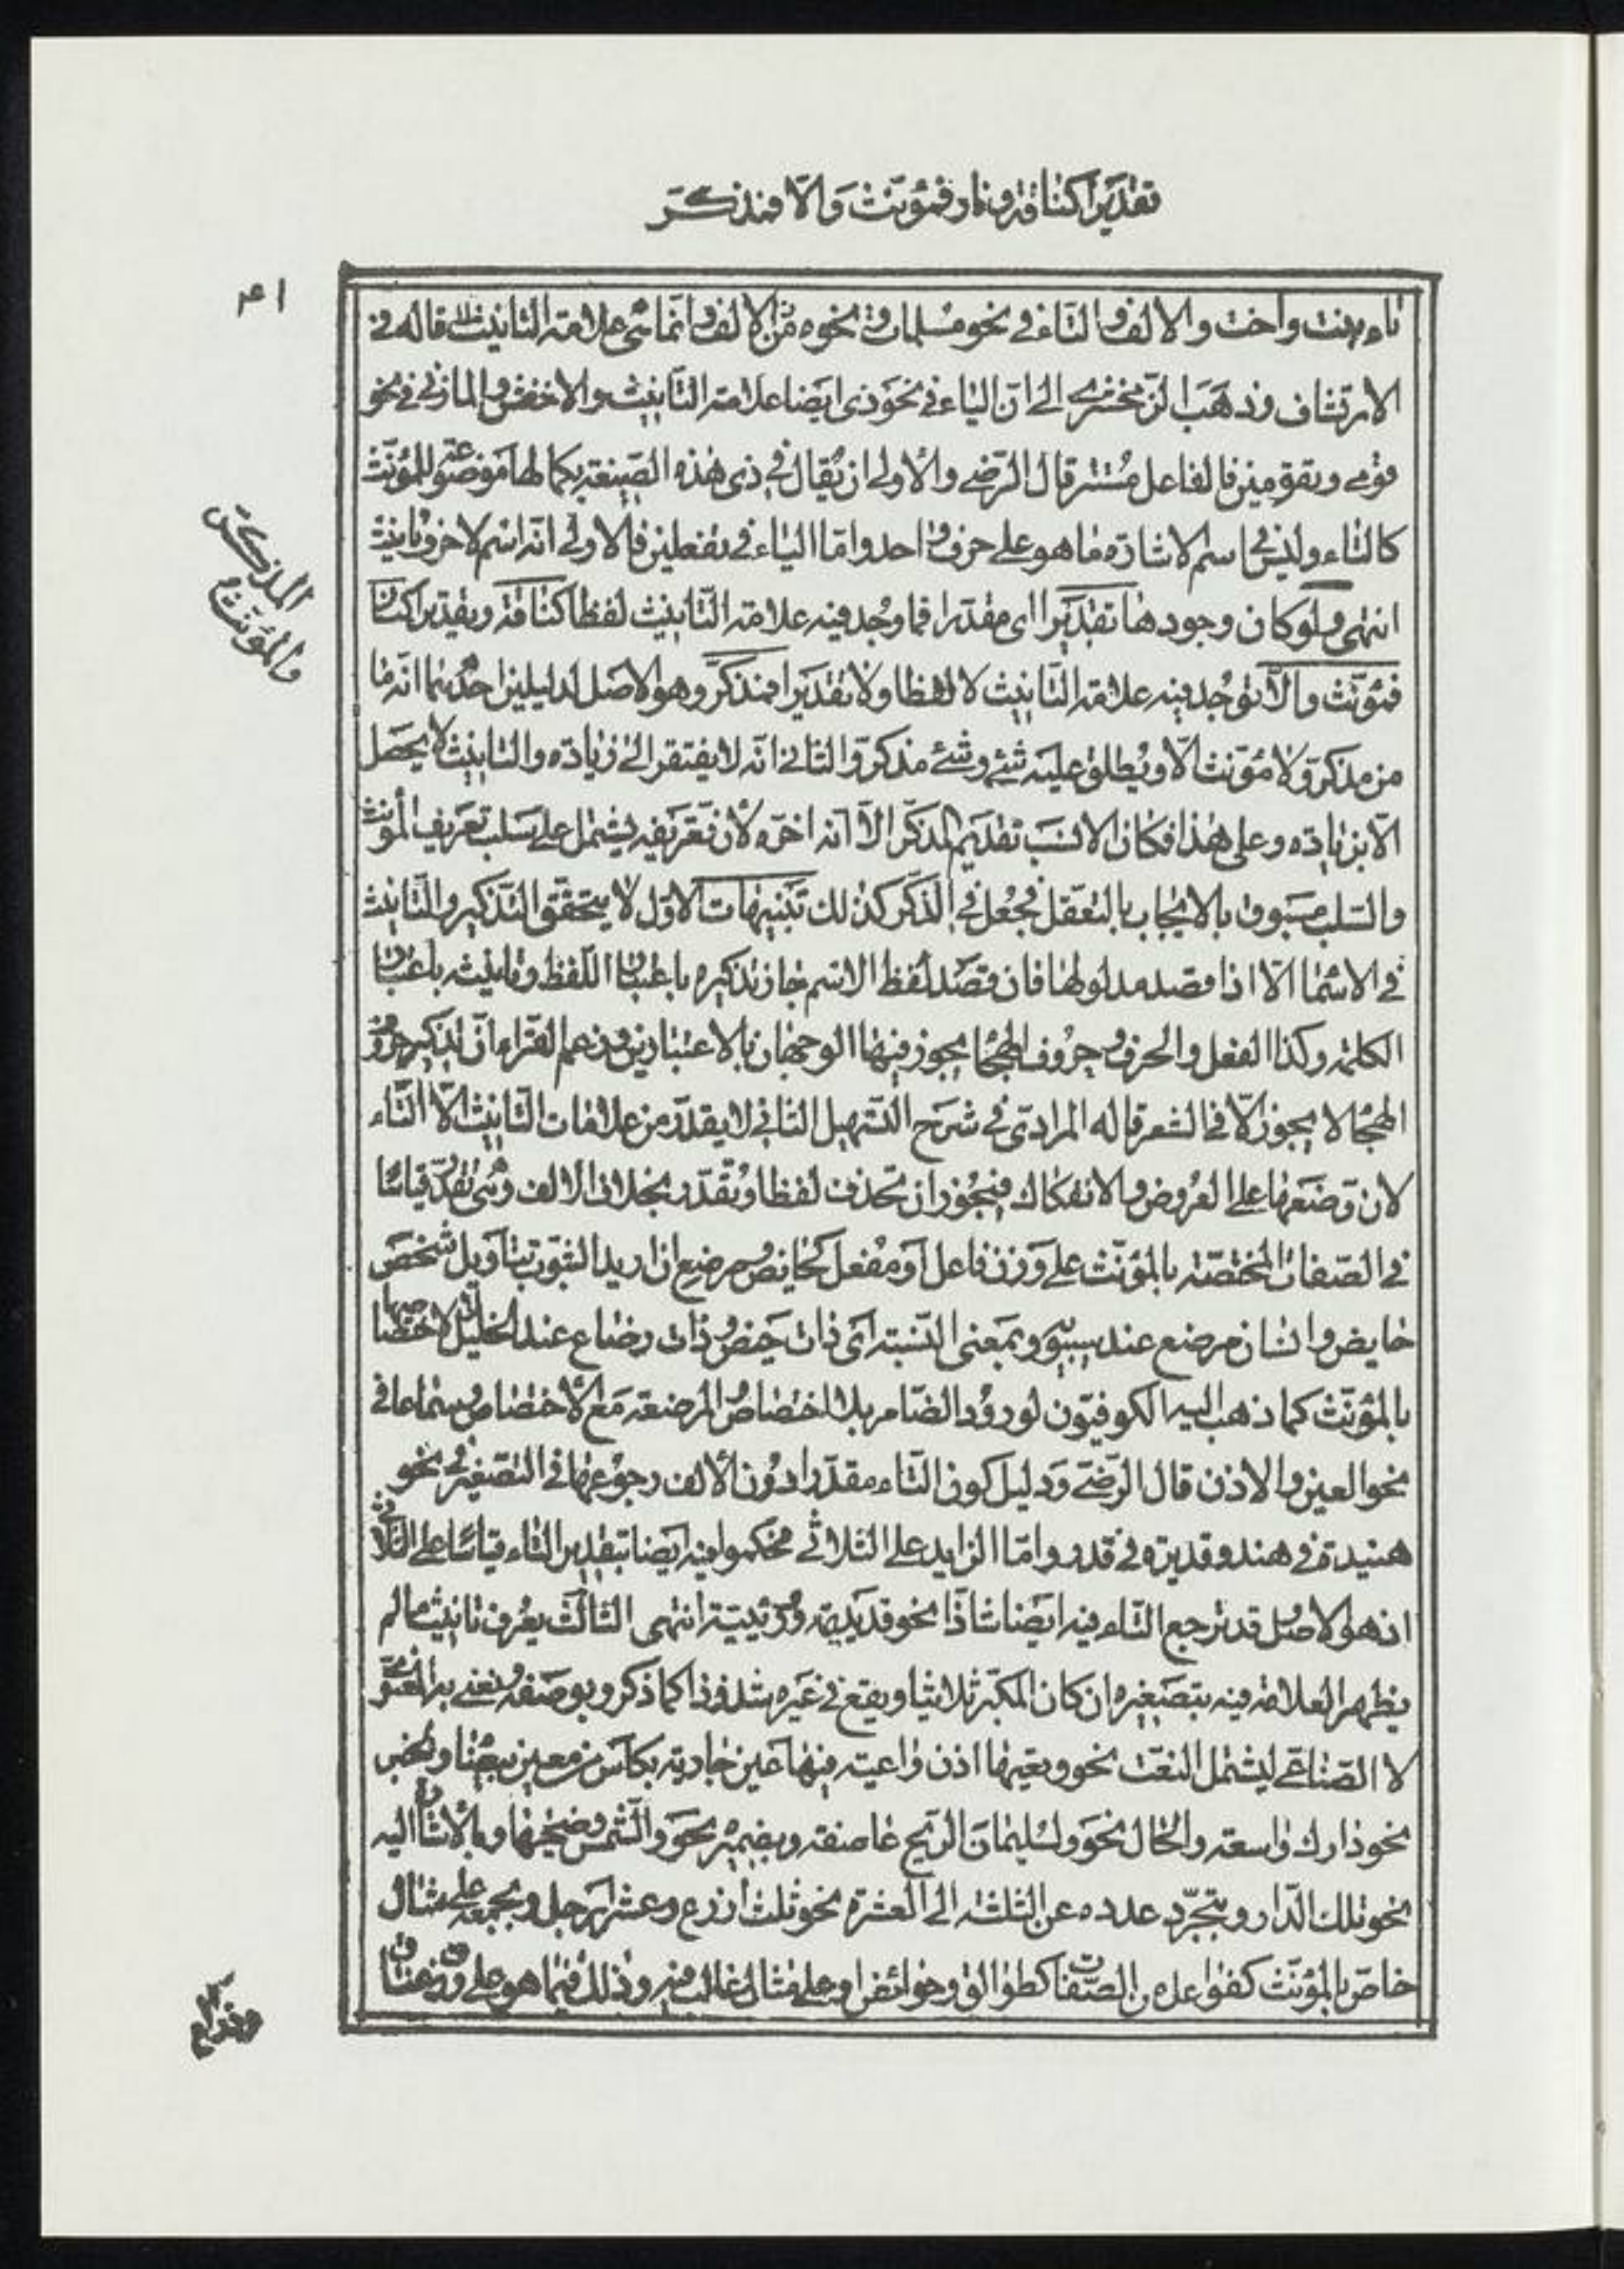 تقديرا كناقة ونار فمؤنث والا فمذكر
٤١
تاء بنت واخت والالف والتاء في نحو مسلمات نحوه من الالف وانما شي علامة التانيث قاله في
الارتشاف وذهب الزمخشري الى ان الياء في نحو ذي ايضا علامة التأنيث والاخفش والمازني في نحو
قومي وتقومين فالفاعل مستتر قال الرضي والاولى ان يقال في ذي هذه الصيغة بكمالها موضوعة للمؤنث
كالتاء وليس في اسم الاشارة ما هو على حرف واحد واما الياء في تفعلين فالاولى انه اسم لا حرف تانيث
انتهى ولو كان وجودها تقديرا اى مقدرا فما وجد فيه علامة التانيث لفظا كناقة وتقديرا كنار
فمؤنث والا توجد فيه علامة التانيث لا لفظا ولا تقديرا فمذكر وهو الاصل لدليلين احدهما انه ما
من مذكر ولا مؤنث الا ويطلق عليه شئ وشئ مذكر والثاني انه لا يفتقر الى زيادة والتانيث لا يحصل
الا بزيادة وعلى هذا فكان الانسب تقديم المذكر الا انه اخره لان تعريفه يشتمل على سلب تعريف المؤنث
والسلب مسبوق بالايجاب بالتعقل فجعل في الذكر كذلك تنبيهات الاول لا يتحقق التذكير والتانيث
في الاسما الا اذا قصد مدلولها فان قصد لفظ الاسم جاز تذكيره باعتبار اللفظ وتانيثه باعتبار
الكلمة وكذا الفعل والحرف وحروف الهجا يجوز فيها الوجهان بالاعتبارين وزعم الفراء ان تذكير حروف
الهجا لا يجوز الا في الشعر قاله المرادي في شرح التسهيل الثاني لا يقدر من علامات التانيث الا التاء
لان وضعها على العروض والانفكاك فيجوز ان تحذف لفظا وتقدر بخلاف الالف وهي تقدر قياسا
في الصفات المختصة بالمؤنث على وزن فاعل او مفعل كحايض ومرضع ان اريد الثبوت بتاويل شخص
حايض وانسان مرضع عند سيبويه وبمعنى النسبة اى ذات حيض وذات رضاع عند الخليل لا لاختصاصها
بالمؤنث كما ذهب اليه الكوفيون لورود الضامر بلا اختصاص المرضعة مع الاختصاص وسماعا في
نحو العين والاذن قال الرضي ودليل كون التاء مقدرا دون الالف رجوعها في التصغير في نحو
هنيدة في هند وقديرة في قدر واما الزايد على الثلاثي فحكموا فيه ايضا بتقدير التاء قياسا على الثلاثي
اذ هو الاصل قد ترجع التاء فيه ايضا شاذا نحو قديديمة ووريئية انتهى الثالث يعرف تانيث ما لم
يظهر العلامة فيه بتصغيره ان كان المكبر ثلاثيا ويقع في غيره شذوذا كما ذكر وبوصفه ونعني به المعنوي
لا الصناعي ليشمل النعت نحو وتعيها اذن واعية فيها عين جارية بكاس من معين بيضا والخبر
نحو دارك واسعة والحال نحو ولسليمان الريح عاصفة وبضميره نحو والشمس وضحيها وبالاشارة اليه
نحو تلك الدار وبتجرد عدده عن الثلثة الى العشرة نحو ثلث اذرع وعشر ارجل وبجمعه على مثال
خاص بالمؤنث كفواعل من الصفات كطوالق وحوائض او على مثال غالب فيه وذلك فيما هو على وزن عناق
المذكر
والمؤنث
وذراع